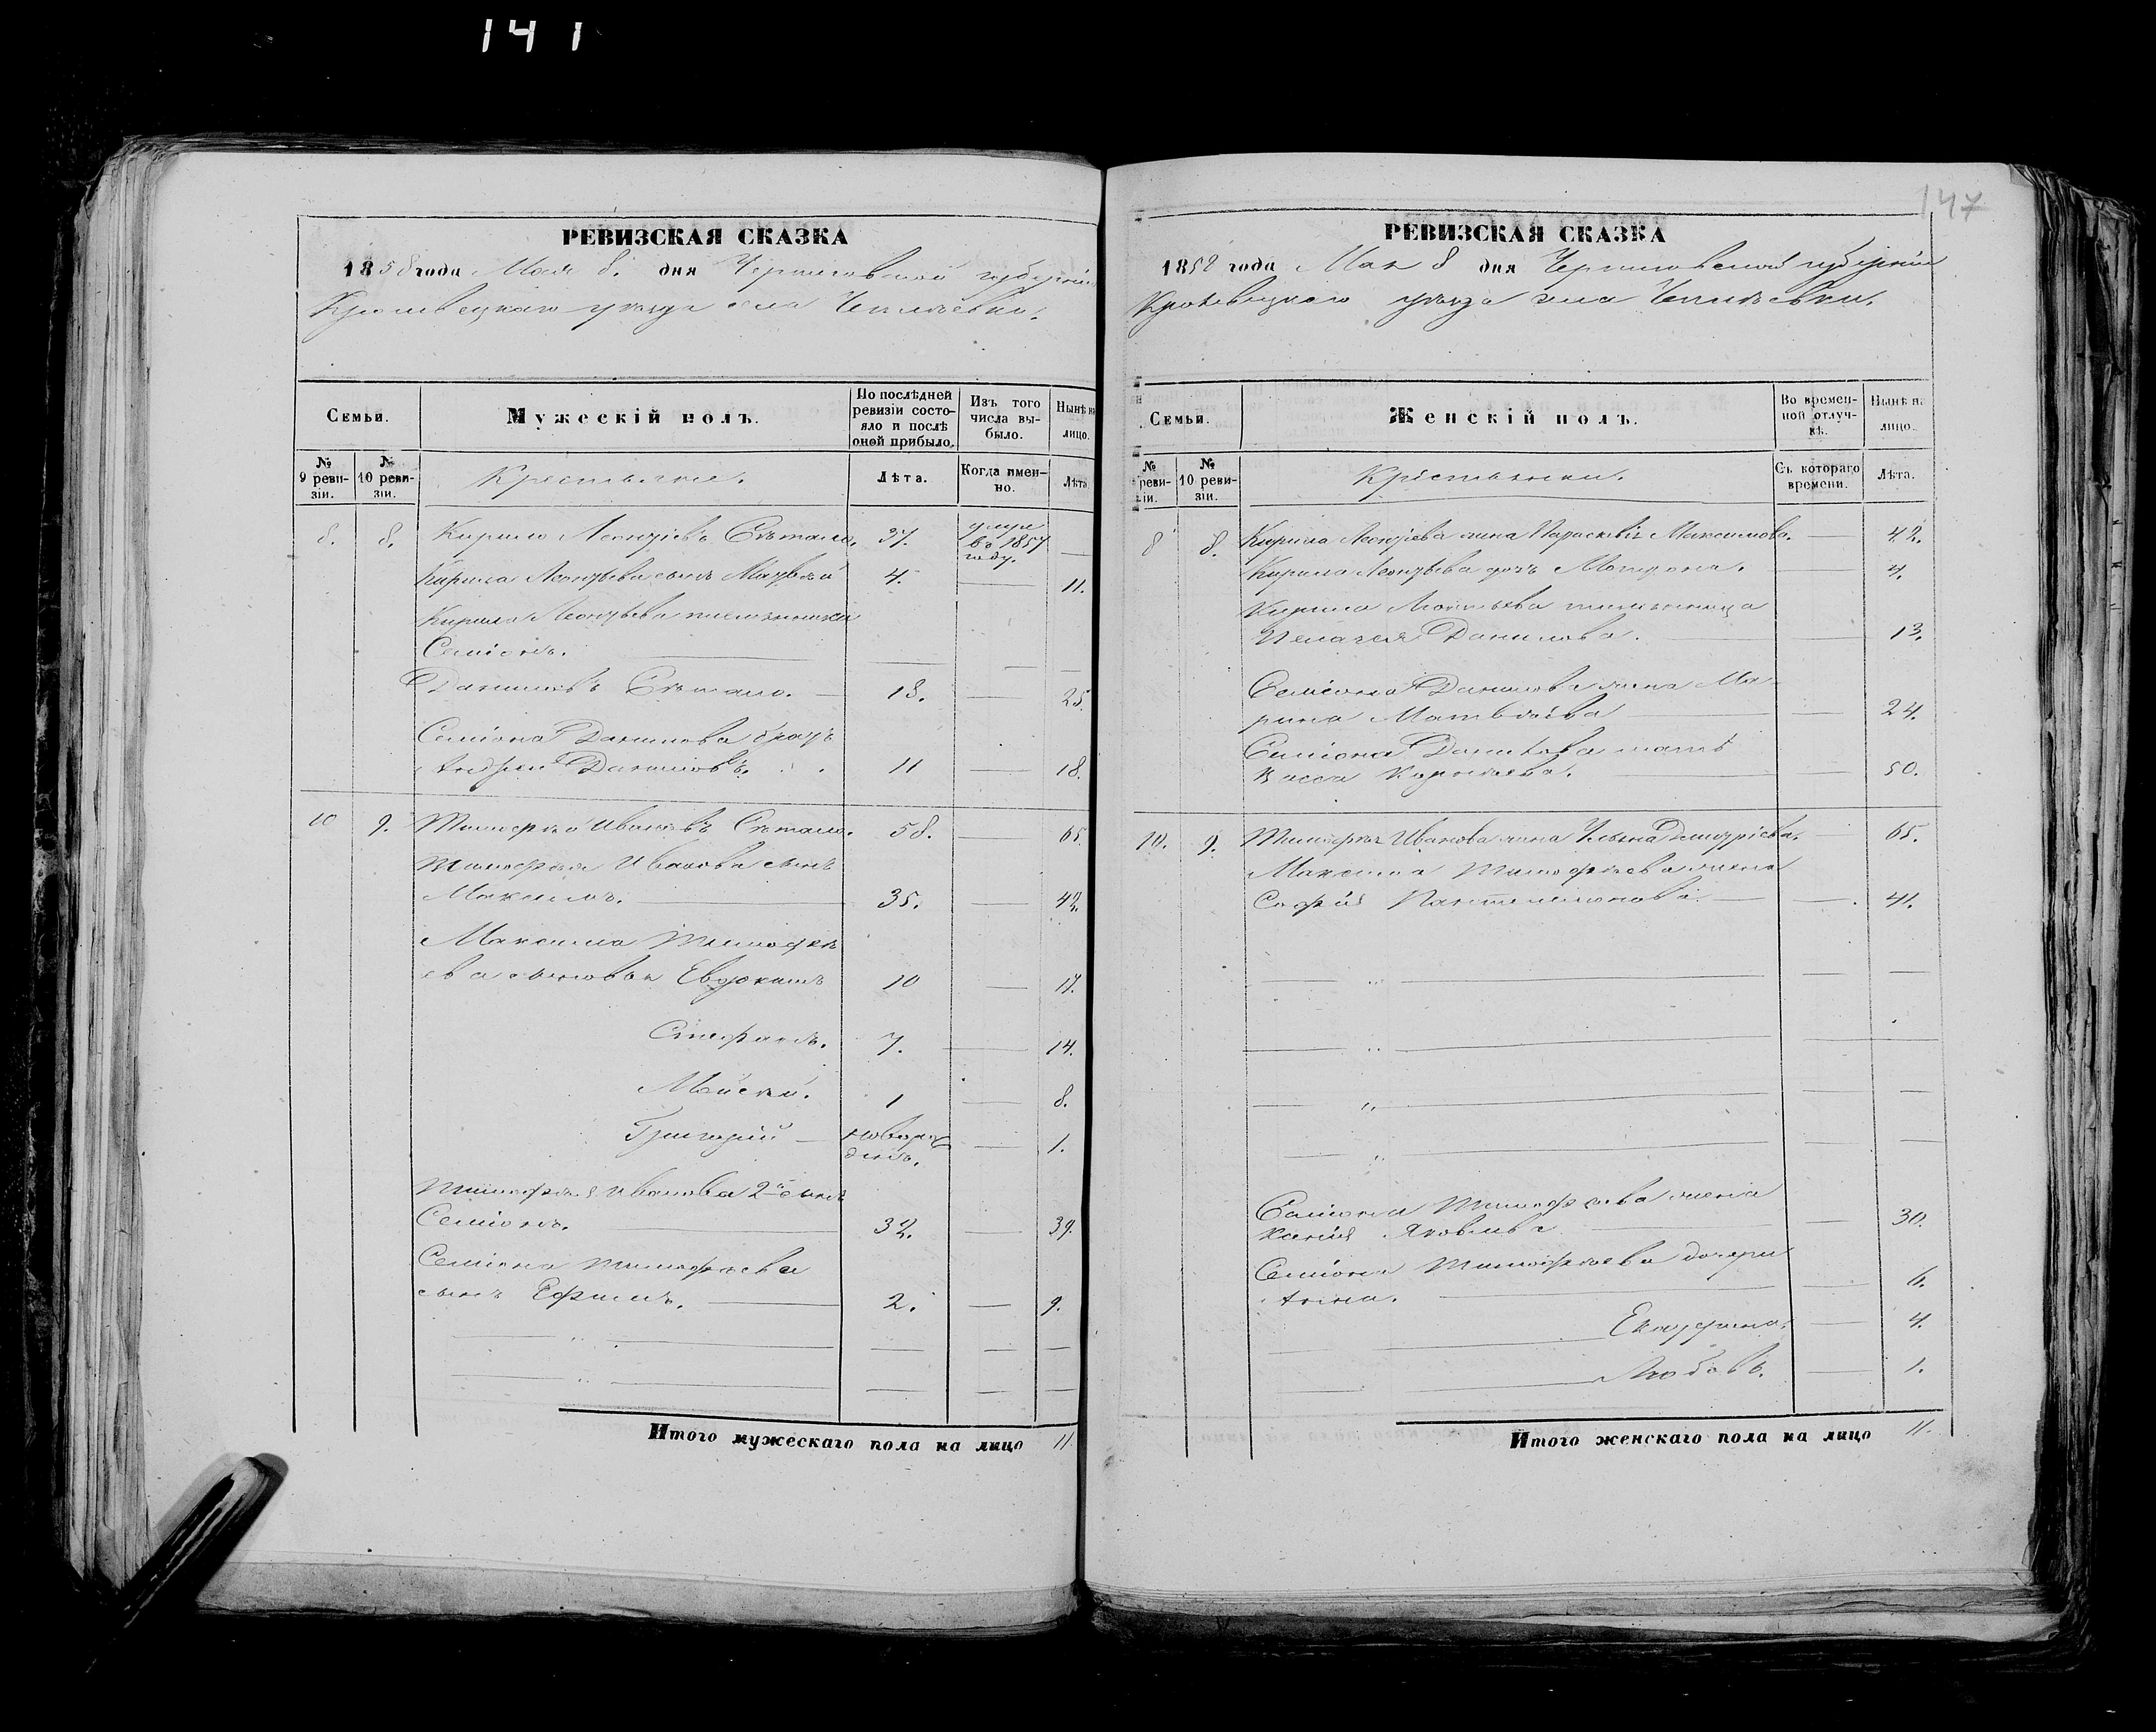 141
РЕВИЗСКАЯ СКАЗКА
1858 года Мая 8. дня Черниговской губерніи
Кролевецкаго уезда села
Семьи.
Мужескій полъ.
По послѣдней ревизіи состо-
яло и послѣ оной прибыло.
Изъ того числа вы-
было.
Нынѣ на лицо.
№ 9 реви-
зіи.
№ 10 реви-
зіи.
Крестьяне.
Лѣта.
Когда имен-
но.
Лѣта
8. 8. Кирило Леонтіевъ 37. умре во 1857 году. —
Кирила Леонтьева сынъ Матвѣй 4. — 11.
Кирила Леонтьева племянники
Семіонъ. — — —
Даниловъ 18. — 25.
Семіона Данилова братъ
Андрей Даниловъ. 11 — 18.
10 9. Тимофѣй Ивановъ 58. — 65.
Тимофѣя Иванова сынъ
Максимъ. 35. — 42.
Максима Тимофѣ
ева сыновья 10 — 17.
Стефанъ. 7. — 14.
Мойсей. 1 — 8.
Григорій — новорож
денъ. — 1.
Тимофѣя Иванова 2й сынъ
Семіонъ. 32. — 39.
Семіона Тимофѣева
сынъ Ефимъ. 2. — 9.
— " — — — —
— " — — — —
Итого мужескаго пола на лицо 11.
147
РЕВИЗСКАЯ СКАЗКА
1858 года Мая 8 дня Черниговской губерніи
Кролевецкаго уезда села
Семьи.
Женскій полъ.
Во времен-
ной отлуч-
кѣ.
Нынѣ на лицо.
№ реви-
зіи.
№ 10 реви-
зіи.
Крестьянки.
Съ котораго времени.
Лѣта.
8 8. Кирила Леонтіева жена Параскевія Максимова. — 42.
Кирила Леонтьева дочь Матрона. — 4.
Кирила Леонтьева племянница
Пелагея Данилова. — 13.
Семіона Данилова жена Ма-
рина Матвѣева — 24.
Семіона Данилова мать
Васса — 50.
10. 9. Тимофѣя Иванова жена Ульяна Дмитріева. — 65.
Максима Тимофѣева жена
Софія Пантелимонова. — 41.
— " — — —
— " — — —
— " — — —
— " — — —
Семіона Тимофѣева жена
Ксенія Яковлева — 30.
Семіона Тимофѣева дочери
Анна. — 6.
Екатерина. — 4.
Любовь. — 1.
Итого женскаго пола на лицо 11.